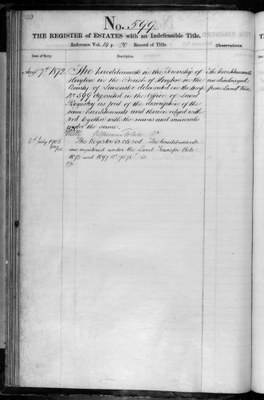 No. 599
THE REGISTER of ESTATES with an Indefeasible Title.
Reference Vol. 20 Record of Title.
Observations.
Date of Entry.
Description.
Augt 7th 1872. The hereditaments in the Township of
in the Parish of in the
County of Lancaster delineated on the Map
No 599 deposited in the Office of Land
Registry as part of the description of the
same hereditaments and therein edged with
red together with the mines and minerals
under the same.
The hereditaments
are discharged
from Land Tax.
2nd July 1903
The Register is closed. The hereditaments
are registered under the Land Transfer Acts
1875 and 1897